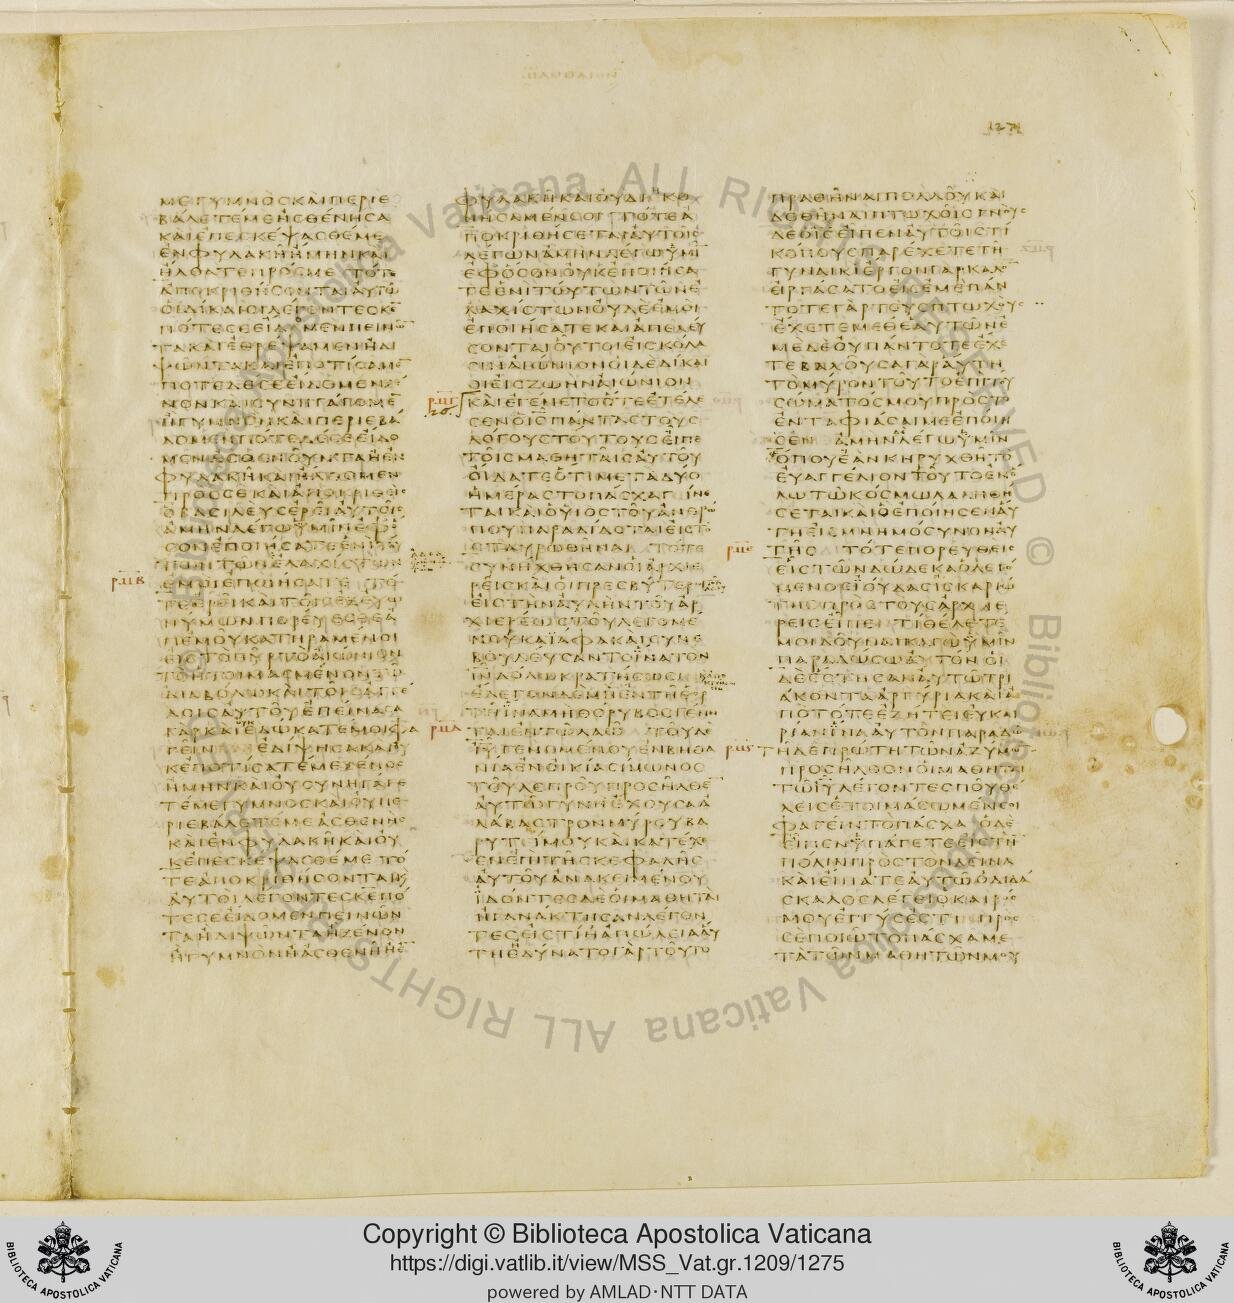 1271
ΜΕΓΥΜΝΟΣΚΑΙΠΕΡΙΕ
ΒΑΛΕΤΕΜΕΗΣΘΕΝΗΣΑ
ΚΑΙΕΠΕΣΚΕΨΑΣΘΕΜΕ
ΕΝΦΥΛΑΚΗΗΜΗΝΚΑΙ
ΗΛΘΑΤΕΠΡΟΣΜΕ ΤΟΤΕ
ΑΠΟΚΡΙΘΗΣΟΝΤΑΙΑΥΤΩ
ΟΙΔΙΚΑΙΟΙΛΕΓΟΝΤΕΣΚΕ
ΠΟΤΕΣΕΕΙΔΑΜΕΝΠΕΙΝΩ
ΤΑΚΑΙΕΘΡΕΨΑΜΕΝΗΔΙ
ΨΩΝΤΑΚΑΙΕΠΟΤΙΣΑΜΕ
ΠΟΤΕΔΕΣΕΕΙΔΟΜΕΝΞΕ
ΝΟΝΚΑΙΣΥΝΗΓΑΓΟΜΕ
ΗΓΥΜΝΟΝΚΑΙΠΕΡΙΕΒΑ
ΛΟΜΕΝΠΟΤΕΔΕΣΕΕΙΔΟ
ΜΕΝΑΣΘΕΝΟΥΝΤΑΗΕΝ
ΦΥΛΑΚΗΚΑΙΗΛΘΟΜΕΝ
ΠΡΟΣΣΕΚΑΙΑΠΟΚΡΙΘΕΙΣ
ΟΒΑΣΙΛΕΥΣΕΡΕΙΑΥΤΟΙΣ
ΑΜΗΝΛΕΓΩΥΜΙΝΕΦΟ
ΣΟΝΕΠΟΙΗΣΑΤΕΕΝΙΤΟΥ
ΤΩΝΤΩΝΕΛΑΧΙΣΤΩΝ
ΕΜΟΙΕΠΟΙΗΣΑΤΕ ΤΟ
ΤΕΕΡΕΙΚΑΙΤΟΙΣΕΞΕΥΩ
ΝΥΜΩΝΠΟΡΕΥΕΣΘΕΑ
ΠΕΜΟΥΚΑΤΗΡΑΜΕΝΟΙ
ΕΙΣΤΟΠΥΡΤΟΑΙΩΝΙΟΝ
ΤΟΗΤΟΙΜΑΣΜΕΝΟΝΤΩ
ΔΙΑΒΟΛΩΚΑΙΤΟΙΣΑΓΓΕ
ΛΟΙΣΑΥΤΟΥΕΠΕΙΝΑΣΑ
ΓΑΡΚΑΙΟΥΚΕΔΩΚΑΤΕΜΟΙΦΑ
ΓΕΙΝ ΕΔΙΨΗΣΑΚΑΙΟΥ
ΚΕΠΟΤΙΣΑΤΕΜΕΞΕΝΟΣ
ΗΜΗΝΚΑΙΟΥΣΥΝΗΓΑΓΕ
ΤΕΜΕΓΥΜΝΟΣΚΑΙΟΥΠΕ
ΡΙΕΒΑΛΕΤΕΜΕΑΣΘΕΝΗΣ
ΚΑΙΕΝΦΥΛΑΚΗΚΑΙΟΥ
ΚΕΠΕΣΚΕΨΑΣΘΕΜΕ ΤΟ
ΤΕΑΠΟΚΡΙΘΗΣΟΝΤΑΙΚΑΙ
ΑΥΤΟΙΛΕΓΟΝΤΕΣΚΕΠΟ
ΤΕΣΕΕΙΔΟΜΕΝΠΕΙΝΩΝ
ΤΑΗΔΙΨΩΝΤΑΗΞΕΝΟΝ
ΗΓΥΜΝΟΝΗΑΣΘΕΝΗΗΕ
ΦΥΛΑΚΗΚΑΙΟΥΔΙΗΚΟ
ΝΗΣΑΜΕΝΣΟΙ ΤΟΤΕΑ
ΠΟΚΡΙΘΗΣΕΤΑΙΑΥΤΟΙΣ
ΛΕΓΩΝΑΜΗΝΛΕΓΩΥΜΙ
ΕΦΟΣΟΝΟΥΚΕΠΟΙΗΣΑ
ΤΕΕΝΙΤΟΥΤΩΝΤΩΝΕ
ΛΑΧΙΣΤΩΝΟΥΔΕΕΜΟΙ
ΕΠΟΙΗΣΑΤΕΚΑΙΑΠΕΛΕΥ
ΣΟΝΤΑΙΟΥΤΟΙΕΙΣΚΟΛΑ
ΣΙΝΑΙΩΝΙΟΝΟΙΔΕΔΙΚΑΙ
ΟΙΕΙΣΖΩΗΝΑΙΩΝΙΟΝ
ΚΑΙΕΓΕΝΕΤΟΟΤΕΕΤΕΛΕ
ΣΕΝΟΙΣΠΑΝΤΑΣΤΟΥΣ
ΛΟΓΟΥΣΤΟΥΤΟΥΣΕΙΠΕ
ΤΟΙΣΜΑΘΗΤΑΙΣΑΥΤΟΥ
ΟΙΔΑΤΕΟΤΙΜΕΤΑΔΥΟ
ΗΜΕΡΑΣΤΟΠΑΣΧΑΓΙΝΕ
ΤΑΙΚΑΙΟΥΙΟΣΤΟΥΑΝΘΡΩ
ΠΟΥΠΑΡΑΔΙΔΟΤΑΙΕΙΣΤΟ
ΣΤΑΥΡΩΘΗΝΑΙ ΤΟΤΕ
ΣΥΝΗΧΘΗΣΑΝΟΙΑΡΧΙΕ
ΡΕΙΣΚΑΙΟΙΠΡΕΣΒΥΤΕΡΟΙ
ΕΙΣΤΗΝΑΥΛΗΝΤΟΥΑΡ
ΧΙΕΡΕΩΣΤΟΥΛΕΓΟΜΕ
ΝΟΥΚΑΙΑΦΑΚΑΙΣΥΝΕ
ΒΟΥΛΕΥΣΑΝΤΟΙΝΑΤΟΝ
ΙΝΔΟΛΩΚΡΑΤΗΣΩΣΙ
ΕΛΕΓΟΝΔΕΜΗΕΝΤΗΕΟΡ
ΤΗΙΝΑΜΗΘΟΡΥΒΟΣΓΕΝΗ
ΤΑΙΕΝΤΩΛΑΩ ΤΟΥΔΕ
ΙΥΓΕΝΟΜΕΝΟΥΕΝΒΗΘΑ
ΝΙΑΕΝΟΙΚΙΑΣΙΜΩΝΟΣ
ΤΟΥΛΕΠΡΟΥΠΡΟΣΗΛΘΕ
ΑΥΤΩΓΥΝΗΕΧΟΥΣΑΑ
ΛΑΒΑΣΤΡΟΝΜΥΡΟΥΒΑ
ΡΥΤΙΜΟΥΚΑΙΚΑΤΕΧΕ
ΕΝΕΠΙΤΗΣΚΕΦΑΛΗΣ
ΑΥΤΟΥΑΝΑΚΕΙΜΕΝΟΥ
ΙΔΟΝΤΕΣΔΕΟΙΜΑΘΗΤΑΙ
ΗΓΑΝΑΚΤΗΣΑΝΛΕΓΟΝ
ΤΕΣΕΙΣΤΙΗΑΠΩΛΕΙΑΑΥ
ΤΗΕΔΥΝΑΤΟΓΑΡΤΟΥΤΟ
ΠΡΑΘΗΝΑΙΠΟΛΛΟΥΚΑΙ
ΔΟΘΗΝΑΙΠΤΩΧΟΙΣΓΝΟΥΣ
ΔΕΟΙΣΕΙΠΕΝΑΥΤΟΙΣΤΙ
ΚΟΠΟΥΣΠΑΡΕΧΕΤΕΤΗ
ΓΥΝΑΙΚΙΕΡΓΟΝΓΑΡΚΑΛΟ
ΕΙΡΓΑΣΑΤΟΕΙΣΕΜΕΠΑΝ
ΤΟΤΕΓΑΡΤΟΥΣΠΤΩΧΟΥΣ
ΕΧΕΤΕΜΕΘΕΑΥΤΩΝΕ
ΜΕΔΕΟΥΠΑΝΤΟΤΕΕΧΕ
ΤΕΒΑΛΟΥΣΑΓΑΡΑΥΤΗ
ΤΟΜΥΡΟΝΤΟΥΤΟΕΠΙΤΟΥ
ΣΩΜΑΤΟΣΜΟΥΠΡΟΣΤΟ
ΕΝΤΑΦΙΑΣΑΙΜΕΕΠΟΙΗ
ΣΕΝ ΑΜΗΝΛΕΓΩΥΜΙΝ
ΟΠΟΥΕΑΝΚΗΡΥΧΘΗΤΟ
ΕΥΑΓΓΕΛΙΟΝΤΟΥΤΟΕΝΟ
ΛΩΤΩΚΟΣΜΩΛΑΛΗΘΗ
ΣΕΤΑΙΚΑΙΟΕΠΟΙΗΣΕΝΑΥ
ΤΗΕΙΣΜΝΗΜΟΣΥΝΟΝΑΥ
ΤΗΣ ΤΟΤΕΠΟΡΕΥΘΕΙΣ
ΕΙΣΤΩΝΔΩΔΕΚΑΟΛΕΓΟ
ΜΕΝΟΣΙΟΥΔΑΣΙΣΚΑΡΙΩ
ΤΗΣΠΡΟΣΤΟΥΣΑΡΧΙΕ
ΡΕΙΣΕΙΠΕΝΤΙΘΕΛΕΤΕ
ΜΟΙΔΟΥΝΑΙΚΑΓΩΥΜΙΝ
ΠΑΡΑΔΩΣΩΑΥΤΟΝΟΙ
ΔΕΕΣΤΗΣΑΝΑΥΤΩΤΡΙ
ΑΚΟΝΤΑΑΡΓΥΡΙΑΚΑΙΑ
ΠΟΤΟΤΕΕΖΗΤΕΙΕΥΚΑΙ
ΡΙΑΝΙΝΑΑΥΤΟΝΠΑΡΑΔΩ
ΤΗΔΕΠΡΩΤΗΤΩΝΑΖΥΜΩ
ΠΡΟΣΗΛΘΟΝΟΙΜΑΘΗΤΑΙ
ΤΩΙΥΛΕΓΟΝΤΕΣΠΟΥΘΕ
ΛΕΙΣΕΤΟΙΜΑΣΩΜΕΝΣΟΙ
ΦΑΓΕΙΝΤΟΠΑΣΧΑ ΟΔΕ
ΕΙΠΕΝΥΠΑΓΕΤΕΕΙΣΤΗ
ΠΟΛΙΝΠΡΟΣΤΟΝΔΕΙΝΑ
ΚΑΙΕΙΠΑΤΕΑΥΤΩΟΔΙΔΑ
ΣΚΑΛΟΣΛΕΓΕΙΟΚΑΙΡΟΣ
ΜΟΥΕΓΓΥΣΕΣΤΙ ΠΡΟΣ
ΣΕΠΟΙΩΤΟΠΑΣΧΑΜΕ
ΤΑΤΩΝΜΑΘΗΤΩΝΜΟΥ
Copyright © Biblioteca Apostolica Vaticana
https://digi.vatlib.it/view/MSS_Vat.gr.1209/1275
powered by AMLAD·NTT DATA